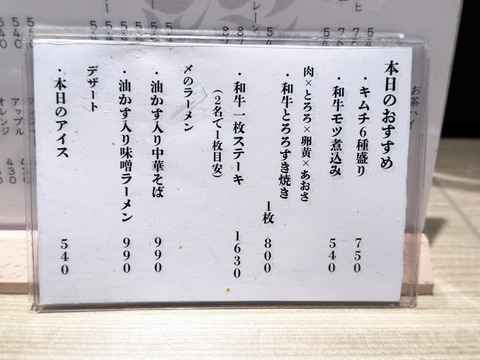 本日のおすすめ
・キムチ6種盛り 750
・和牛モツ煮込み 540
肉×とろろ×卵黄×あおさ
・和牛とろろすき焼き
1枚 800
・和牛一枚ステーキ 1630
(2名で1枚目安)
〆のラーメン
・油かす入り中華そば 990
・油かす入り味噌ラーメン 990
デザート
・本日のアイス 540
お茶ハイ
オレンジ 430
アップル 430